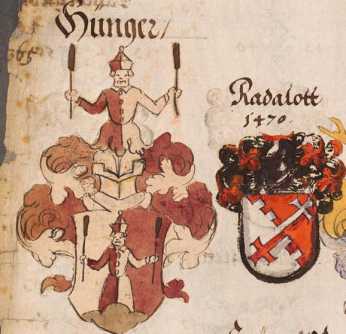 Hunger /
Radalott
1470.